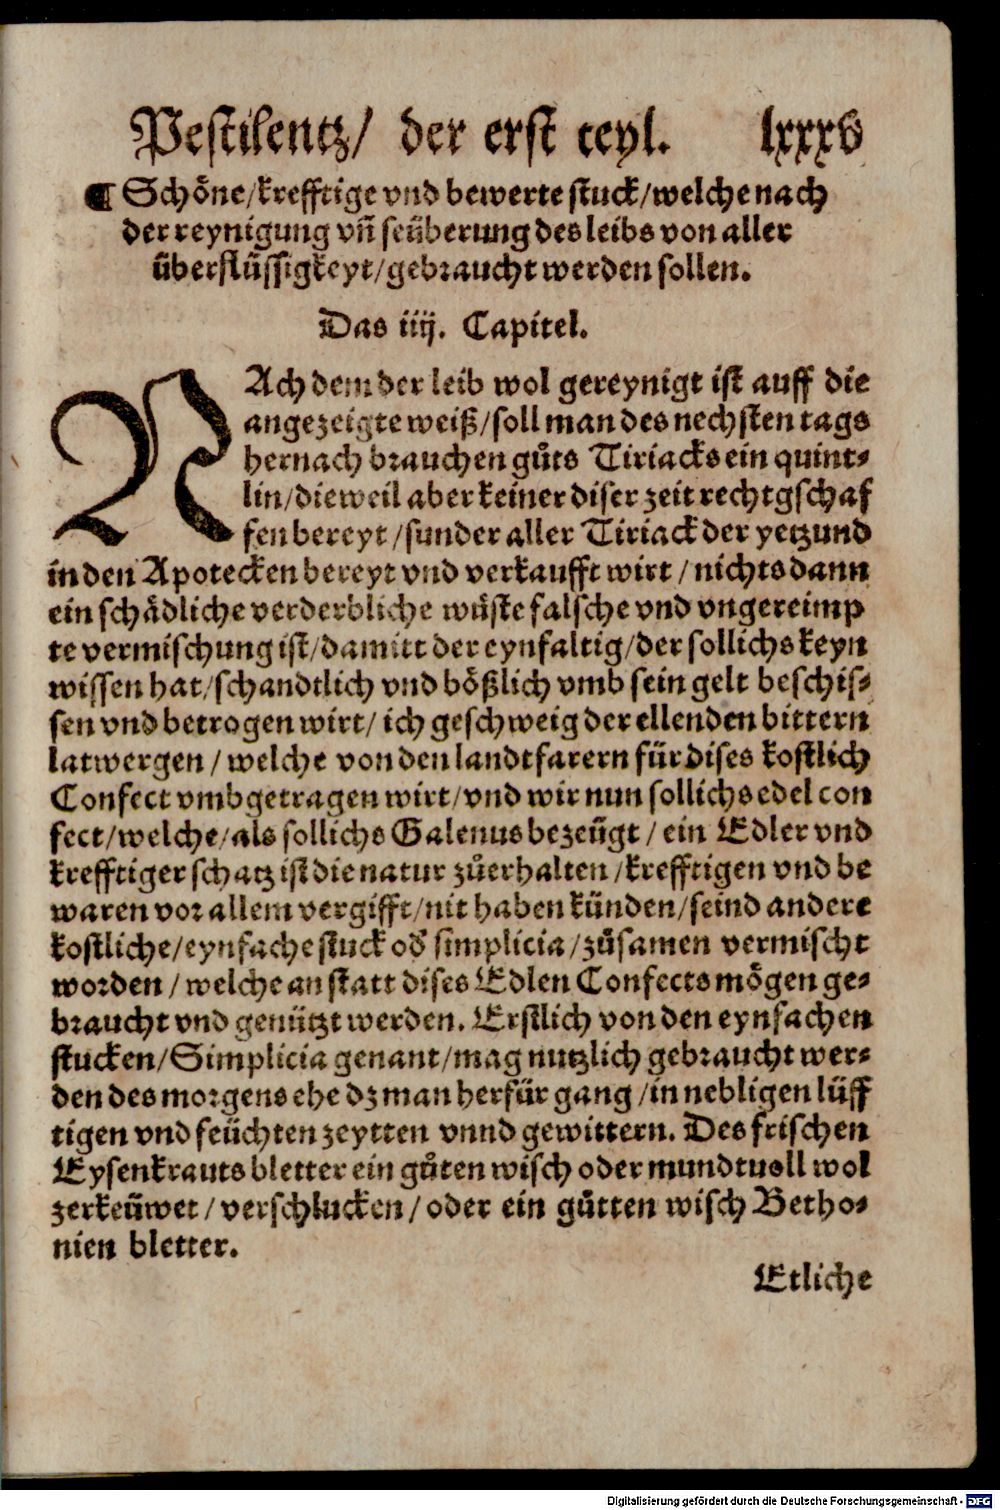 Pestilentz/ der erst teyl. lxxxv
¶ Schöne/krefftige vnd bewerte stuck/welche nach
der reynigung vñ seüberung des leibs von aller
überflüssigkeyt/gebraucht werden sollen.
Das iiij. Capitel.
NAch dem der leib wol gereynigt ist auff die
angezeigte weiß/soll man des nechsten tags
hernach brauchen gůts Tiriacks ein quint-
lin/dieweil aber keiner diser zeit rechtgschaf
fen bereyt/sunder aller Tiriack der yetzund
in den Apotecken bereyt vnd verkaufft wirt/nichts dann
ein schädliche verderbliche wüste falsche vnd vngereimp
te vermischung ist/damitt der eynfaltig/der sollichs keyn
wissen hat/schandtlich vnd bößlich vmb sein gelt beschis-
sen vnd betrogen wirt/ich geschweig der ellenden bittern
latwergen/welche von den landtfarern für dises kostlich
Confect vmbgetragen wirt/vnd wir nun sollichs edel con
fect/welche/als sollichs Galenus bezeügt/ein Edler vnd
krefftiger schatz ist die natur zůerhalten/krefftigen vnd be
waren vor allem vergifft/nit haben künden/seind andere
kostliche/eynfache stuck od' simplicia/zůsamen vermischt
worden/welche an statt dises Edlen Confects mögen ge-
braucht vnd genützt werden. Erstlich von den eynfachen
stucken/Simplicia genant/mag nutzlich gebraucht wer-
den des morgens ehe dz man herfür gang/in nebligen lüff
tigen vnd feüchten zeytten vnnd gewittern. Des frischen
Eysenkrauts bletter ein gůten wisch oder mundtuoll wol
zerkeüwet/verschlucken/oder ein gůtten wisch Betho-
nien bletter.
Etliche
Digitalisierung gefördert durch die Deutsche Forschungsgemeinschaft - DFG